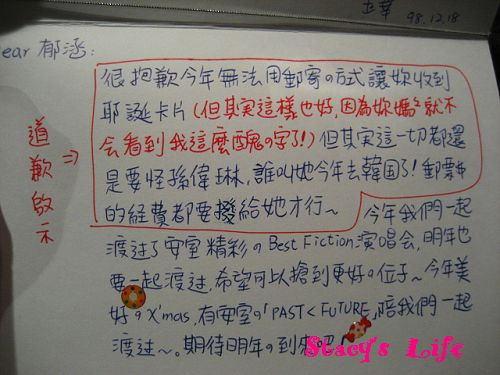 98.12.18
ear 郁涵：
很抱歉今年無法用郵寄の方式讓妳收到
耶誕卡片(但其實這樣也好,因為妳媽々就不
会看到我這麼醜の字了!)但其實這一切都還
是要怪孫偉琳,誰叫她今年去韓国了!郵票
的經費都要撥給她才行~
道歉啟示 ⇒
今年我們一起
渡过了安室精彩のBest Fiction演唱会,明年也
要一起渡过,希望可以搶到更好の位子~今年美
好のX'mas,有安室の「PAST < FUTURE」陪我們一起
渡过~。期待明年の到來吧
Stacy's Life